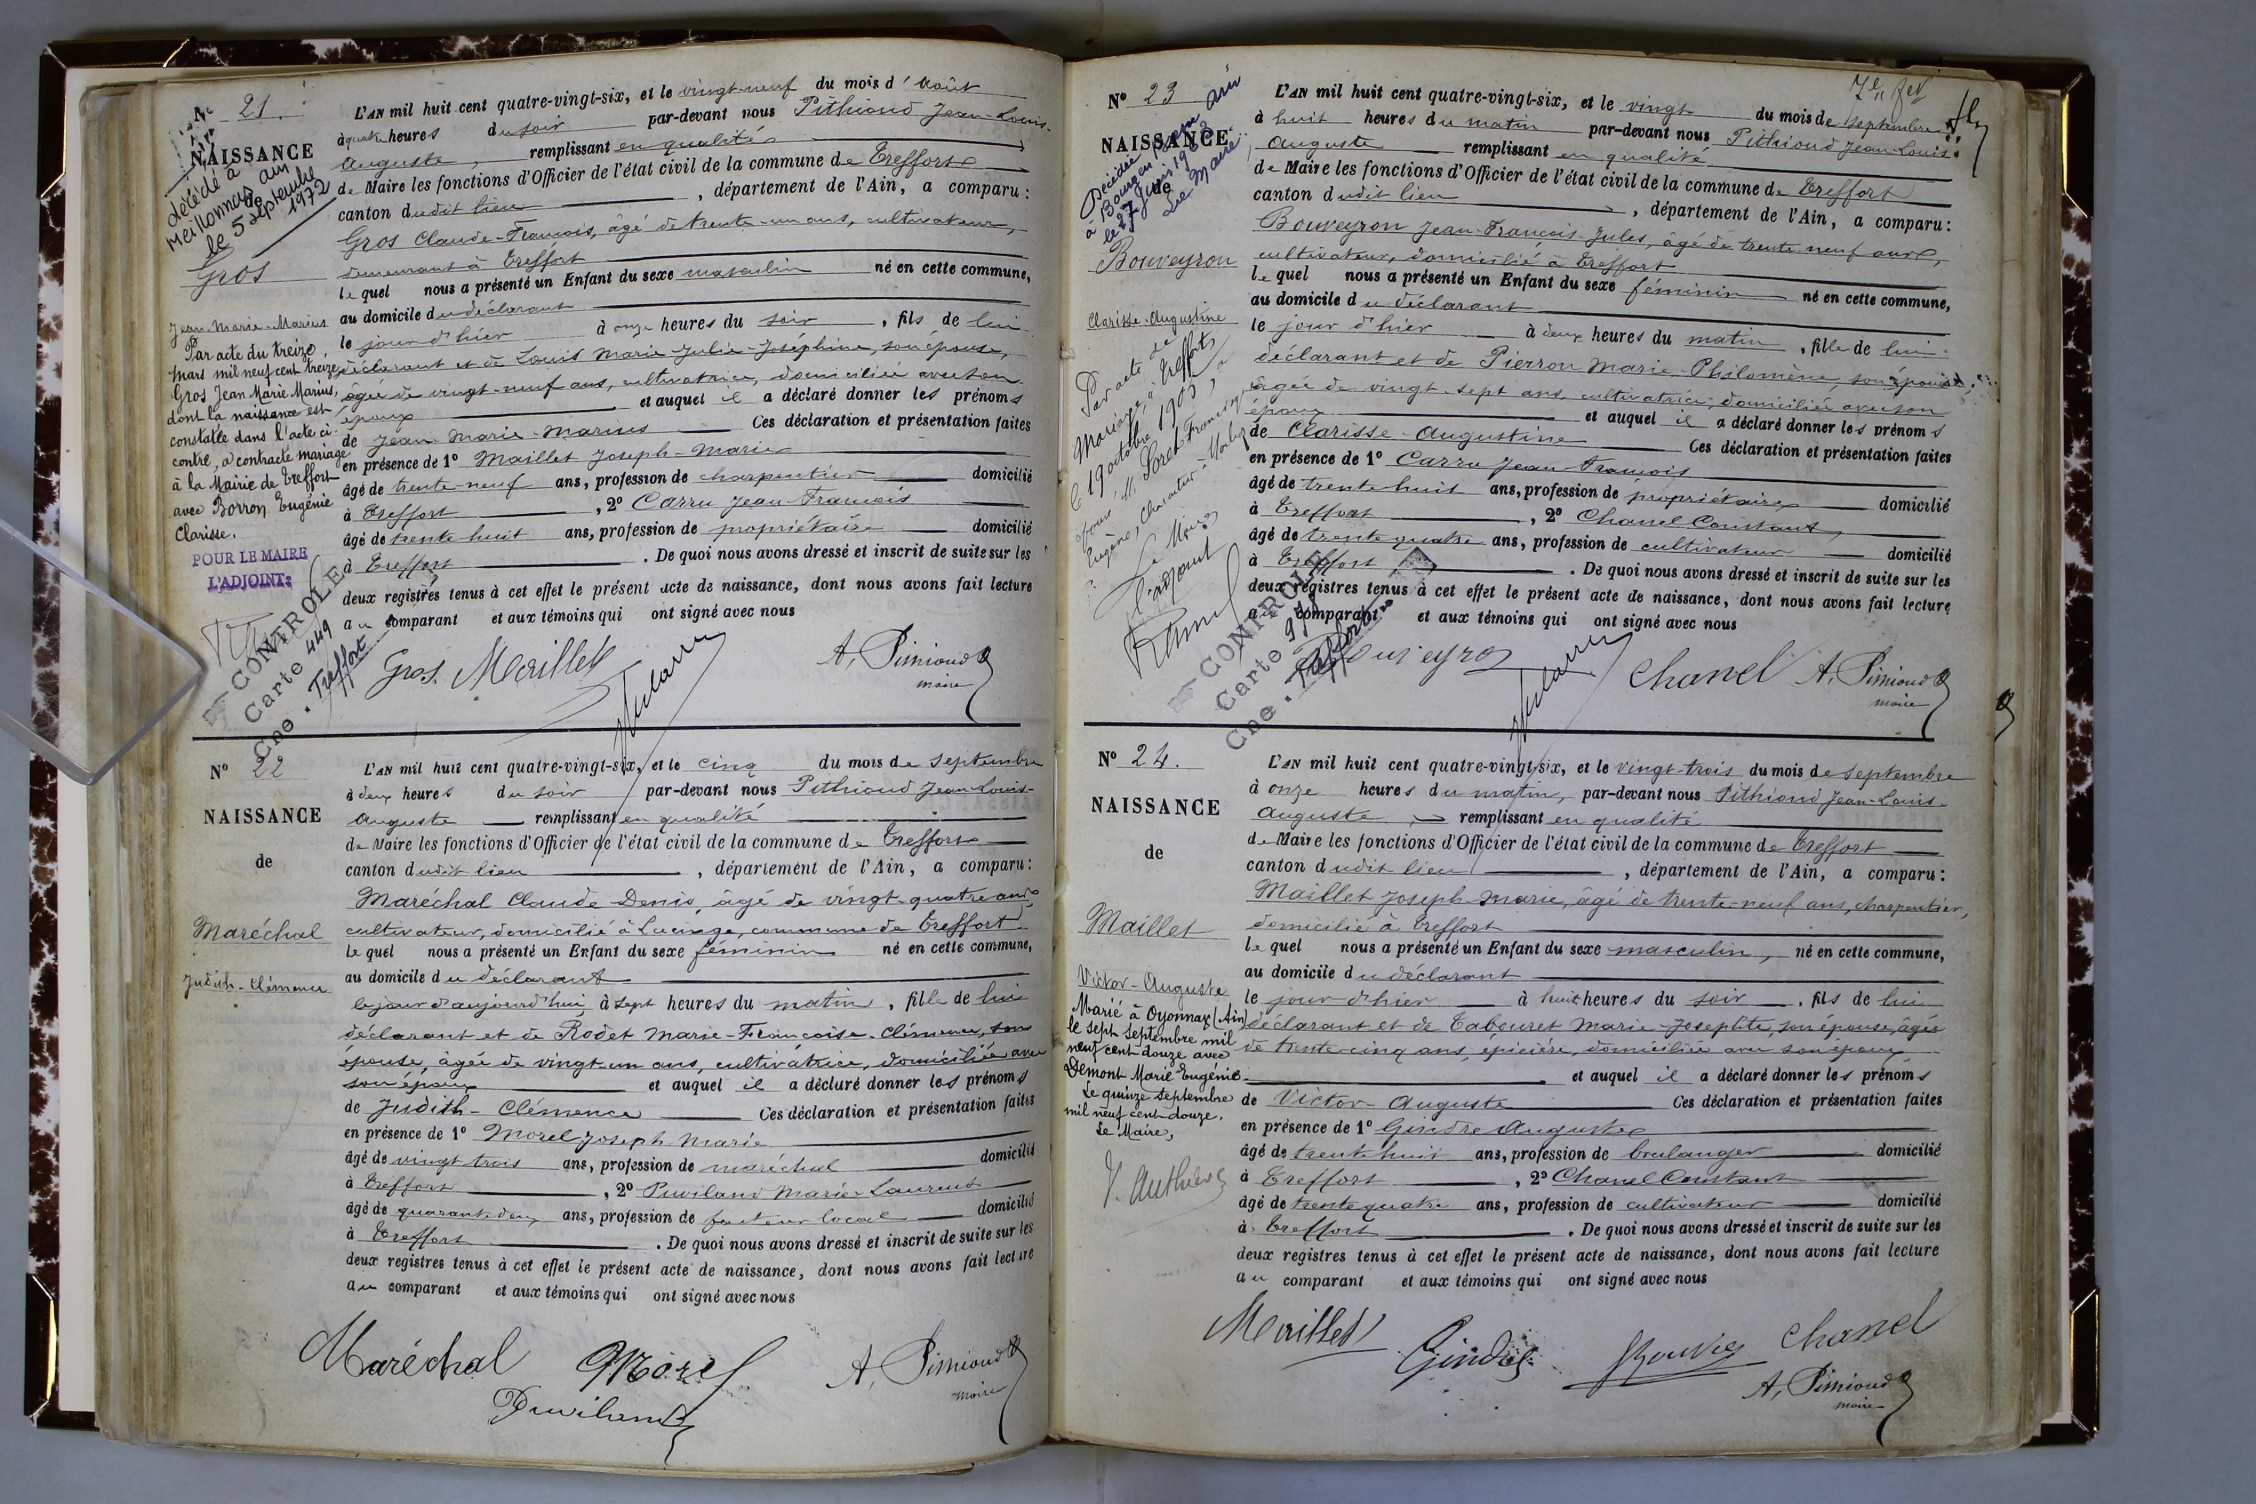 No 21.
NAISSANCE
de
décédé à
Meillonnas Ain
le 5 septembre
1972
Gros
Jean-Marie-Marius
Par acte du treize
mars mil neuf cent treize,
Gros Jean Marie Marius,
dont la naissance est
constatée dans l'acte ci-
contre, a contracté mariage
à la Mairie de Treffort
avec Borron Eugénie
Clarisse.
POUR LE MAIRE
L'ADJOINT:
CONTROLE
Carte 449
Cne. Treffort
L'AN mil huit cent quatre-vingt-six, et le vingt-neuf du mois d'Août
à quatre heures du soir par-devant nous Pithioud Jean-Louis-
Auguste, remplissant en qualité
de Maire les fonctions d'Officier de l'état civil de la commune de Treffort
canton dudit lieu, département de l'Ain, a comparu:
Gros Claude-François, âgé de trente-un ans, cultivateur,
demeurant à Treffort
lequel nous a présenté un Enfant du sexe masculin né en cette commune,
au domicile du déclarant
le jour d'hier à onze heures du soir, fils de lui
déclarant et de Louis Marie-Julie-Joséphine, son épouse,
âgée de vingt-neuf ans, cultivatrice, domiciliée avec son
époux et auquel il a déclaré donner les prénoms
de Jean-Marie-Marius Ces déclaration et présentation faites
en présence de 1º Maillet Joseph-Marie
âgé de trente-neuf ans, profession de charpentier domicilié
à Treffort, 2º Carru Jean-François
âgé de trente huit ans, profession de propriétaire domicilié
à Treffort. De quoi nous avons dressé et inscrit de suite sur les
deux registres tenus à cet effet le présent acte de naissance, dont nous avons fait lecture
au comparant et aux témoins qui ont signé avec nous
Gros. Maillet A, Pithioud
maire
No 22
NAISSANCE
de
Maréchal
Judith-Clémence
L'AN mil huit cent quatre-vingt-six, et le cinq du mois de septembre
à deux heures du soir par-devant nous Pithioud Jean-Louis-
Auguste remplissant en qualité
de Maire les fonctions d'Officier de l'état civil de la commune de Treffort
canton dudit lieu, département de l'Ain, a comparu:
Maréchal Claude-Denis, âgé de vingt-quatre ans,
cultivateur, domicilié à Lucinge, commune de Treffort
lequel nous a présenté un Enfant du sexe féminin né en cette commune,
au domicile du déclarant
le jour d'aujourd'hui à sept heures du matin, fille de lui
déclarant et de Rodet Marie-Françoise-Clémence, son
épouse, âgée de vingt-un ans, cultivatrice, domiciliée avec
son époux et auquel il a déclaré donner les prénoms
de Judith-Clémence Ces déclaration et présentation faites
en présence de 1º Morel Joseph-Marie
âgé de vingt trois ans, profession de maréchal domicilié
à Treffort, 2º Puviland Marie-Laurent
âgé de quarante-deux ans, profession de facteur local domicilié
à Treffort. De quoi nous avons dressé et inscrit de suite sur les
deux registres tenus à cet effet le présent acte de naissance, dont nous avons fait lecture
au comparant et aux témoins qui ont signé avec nous
Maréchal Morel A, Pithioud
maire
Puviland
No 23
NAISSANCE
de
Décédée
à Bourg en Bresse Ain
le 27 Juin
Le Maire
Bouveyron
Clarisse-Augustine
Par acte de
mariage, à Treffort,
le 19 octobre 1905, a
épousé M. Loret François
Eugène,
Le Maire
L'adjoint
CONTROLE
Carte
Cne. Treffort
L'AN mil huit cent quatre-vingt-six, et le vingt du mois de septembre
à huit heures du matin par-devant nous Pithioud Jean-Louis-
Auguste remplissant en qualité
de Maire les fonctions d'Officier de l'état civil de la commune de Treffort
canton dudit lieu, département de l'Ain, a comparu:
Bouveyron Jean-François-Jules, âgé de trente-neuf ans,
cultivateur, domicilié à Treffort
lequel nous a présenté un Enfant du sexe féminin né en cette commune,
au domicile du déclarant
le jour d'hier à deux heures du matin, fille de lui
déclarant et de Pierron Marie-Philomène, son épouse,
âgée de vingt-sept ans, cultivatrice, domiciliée avec son
époux et auquel il a déclaré donner les prénoms
de Clarisse-Augustine Ces déclaration et présentation faites
en présence de 1º Carru Jean-François
âgé de trente huit ans, profession de propriétaire domicilié
à Treffort, 2º Chanel Constant,
âgé de trente quatre ans, profession de cultivateur domicilié
à Treffort. De quoi nous avons dressé et inscrit de suite sur les
deux registres tenus à cet effet le présent acte de naissance, dont nous avons fait lecture
au comparant et aux témoins qui ont signé avec nous
Bouveyron Chanel A, Pithioud
maire
No 24.
NAISSANCE
de
Maillet
Victor-Auguste
Marié à Oyonnax (Ain)
le sept Septembre mil
neuf cent douze avec
Demont Marie Eugénie
Le quinze septembre
mil neuf cent douze.
Le Maire,
L'AN mil huit cent quatre-vingt-six, et le vingt-trois du mois de septembre
à onze heures du matin, par-devant nous Pithioud Jean-Louis-
Auguste remplissant en qualité
de Maire les fonctions d'Officier de l'état civil de la commune de Treffort
canton dudit lieu, département de l'Ain, a comparu:
Maillet Joseph-Marie, âgé de trente-neuf ans, charpentier,
domicilié à Treffort
lequel nous a présenté un Enfant du sexe masculin, né en cette commune,
au domicile du déclarant
le jour d'hier à huit heures du soir, fils de lui
déclarant et de Tabouret Marie-Josephte, son épouse, âgée
de trente-cinq ans, épicière, domiciliée avec son époux
et auquel il a déclaré donner les prénoms
de Victor-Auguste Ces déclaration et présentation faites
en présence de 1º Gindre Auguste
âgé de trente huit ans, profession de boulanger domicilié
à Treffort, 2º Chanel Constant
âgé de trente quatre ans, profession de cultivateur domicilié
à Treffort. De quoi nous avons dressé et inscrit de suite sur les
deux registres tenus à cet effet le présent acte de naissance, dont nous avons fait lecture
au comparant et aux témoins qui ont signé avec nous
Maillet Gindre Chanel
A, Pithioud
maire